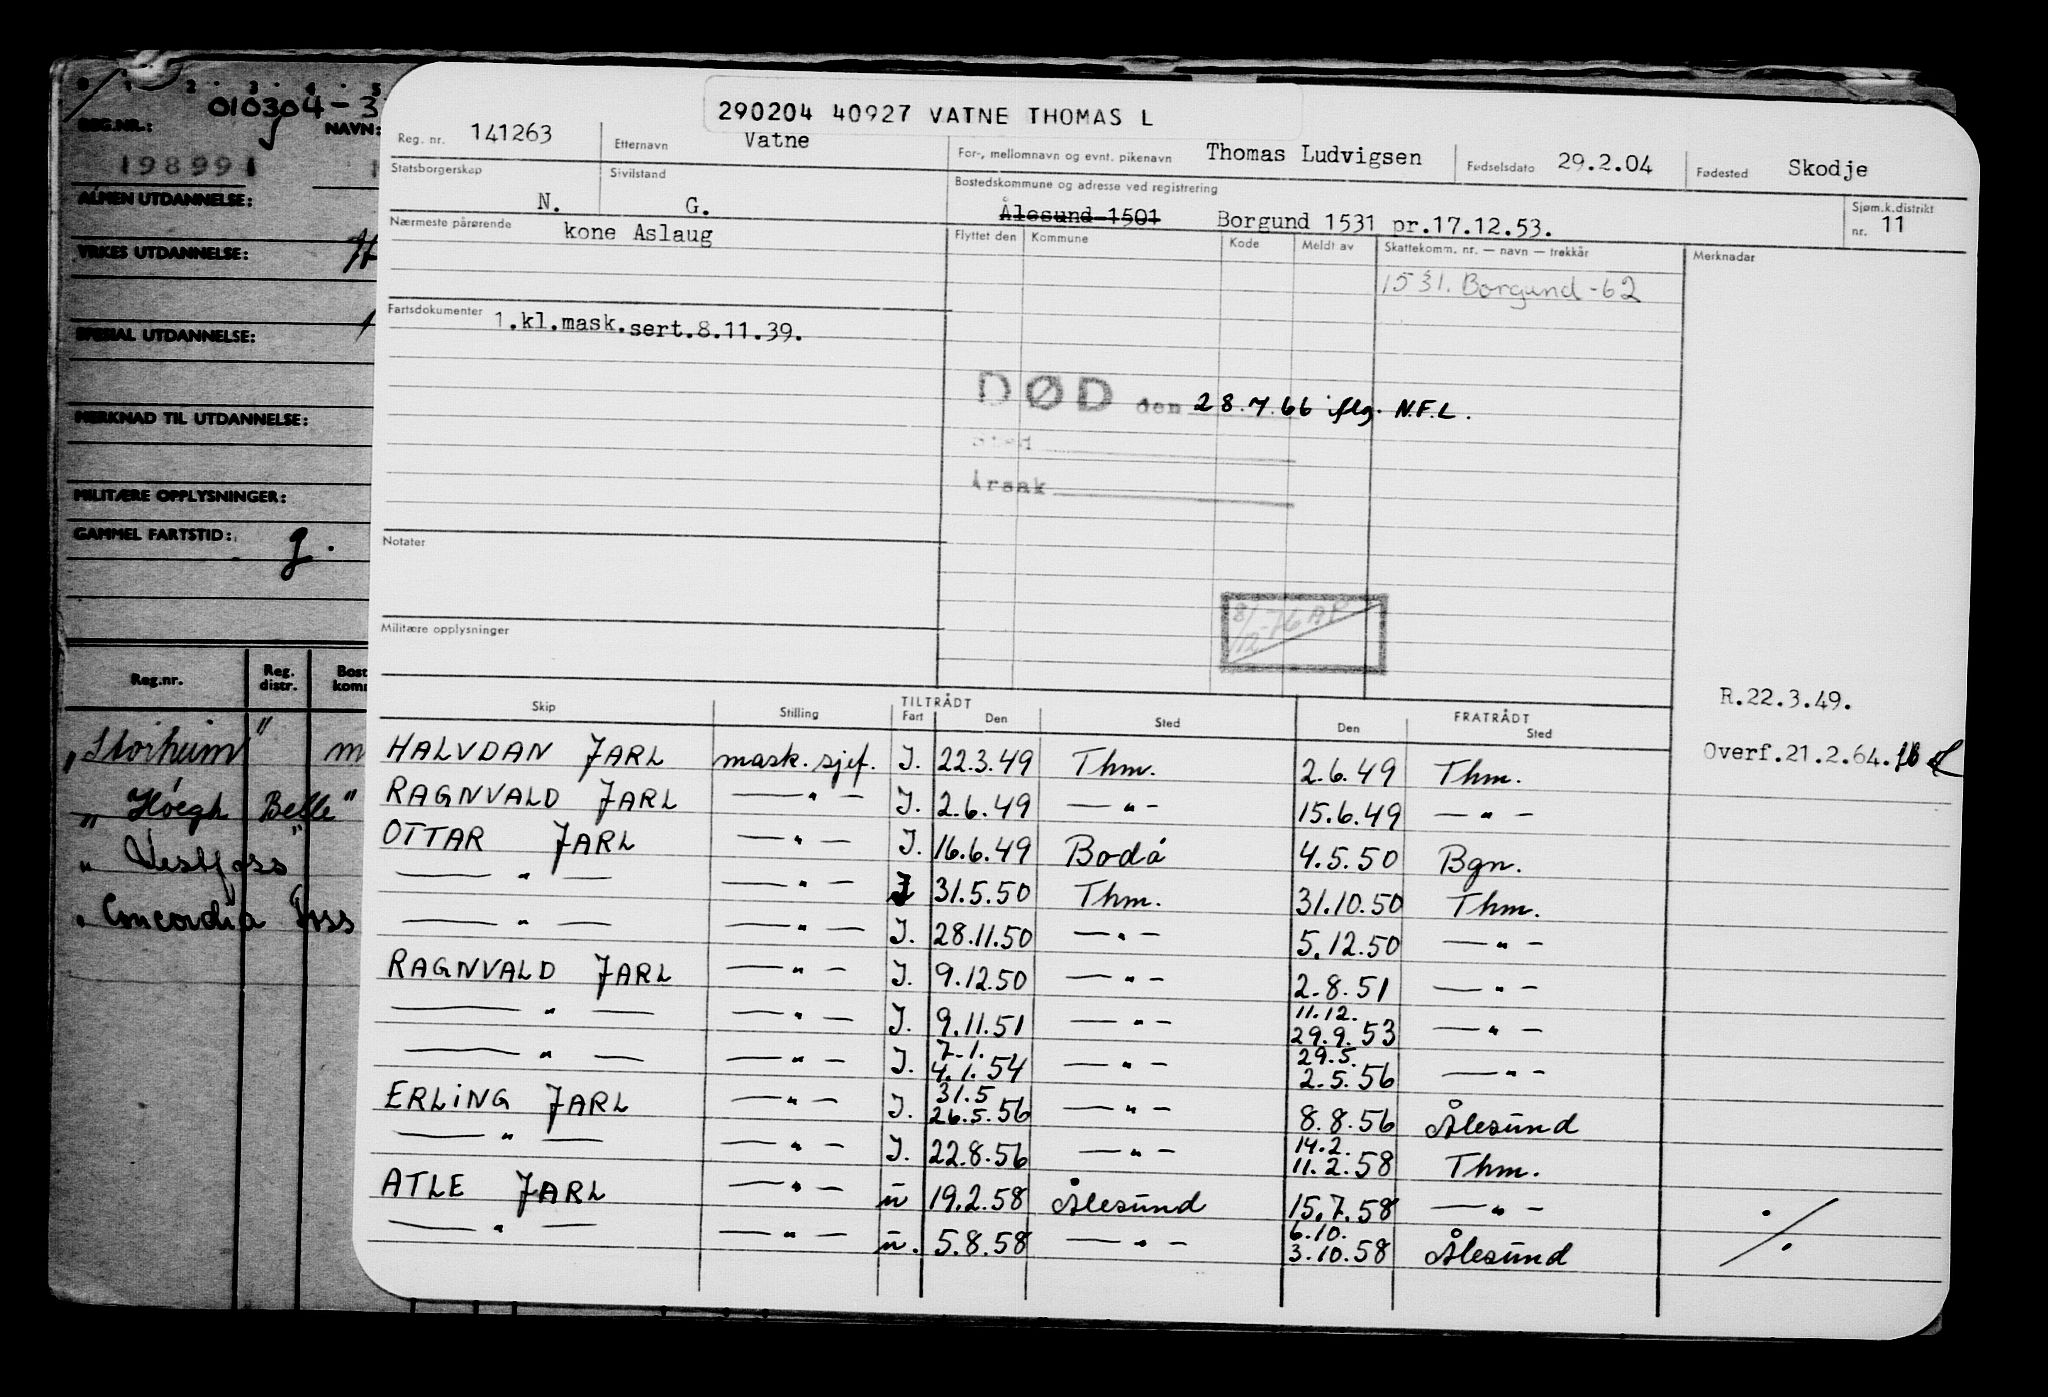 0 1 2 3 4 5
010304-3
REG.NR.: NAVN:
198991
ALMEN UTDANNELSE:
YRKES UTDANNELSE:
SPESIAL UTDANNELSE:
MERKNAD TIL UTDANNELSE:
MILITÆRE OPPLYSNINGER:
GAMMEL FARTSTID: g.
Reg.nr. Reg. distr. Bost komm
"Storheim" m
" Høegh Belle"
" Vestfoss"
" Concordia Foss
290204 40927 VATNE THOMAS L
Reg. nr. 141263 Etternavn Vatne For-, mellomnavn og evnt. pikenavn Thomas Ludvigsen Fødselsdato 29.2.04 Fødested Skodje
Statsborgerskap N. Sivilstand G. Bostedskommune og adresse ved registrering Ålesund 1501 Borgund 1531 pr.17.12.53. Sjøm.k.distrikt nr. 11
Nærmeste pårørende kone Aslaug Flyttet den Kommune Kode Meldt av Skattekomm. nr. — navn — trekkår Merknadar
1531. Borgund -62
Fartsdokumenter 1.kl.mask.sert.8.11.39.
DØD den 28.7.66 iflg. N.F.L.
Sted
Årsak
Notater
8/12-76 AP
Militære opplysninger
R.22.3.49.
Overf.21.2.64.
Skip Stilling TILTRÅDT Fart Den Sted FRATRÅDT Den Sted
HALVDAN JARL mask.sjef. I. 22.3.49 Thm. 2.6.49 Thm.
RAGNVALD JARL —"— I. 2.6.49 —"— 15.6.49 —"—
OTTAR JARL —"— I. 16.6.49 Bodø 4.5.50 Bgn.
—"— —"— I 31.5.50 Thm. 31.10.50 Thm.
—"— —"— I. 28.11.50 —"— 5.12.50 —"—
RAGNVALD JARL —"— I. 9.12.50 —"— 2.8.51 —"—
—"— —"— I. 9.11.51 —"— 11.12. 29.9.53 —"—
—"— —"— I. 7.1. 4.1.54 —"— 29.5. 2.5.56 —"—
ERLING JARL —"— I. 31.5 26.5.56 —"— 8.8.56 Ålesund
—"— —"— I. 22.8.56 —"— 14.2. 11.2.58 Thm.
ATLE JARL —"— u 19.2.58 Ålesund 15.7.58 —"—
—"— —"— u. 5.8.58 —"— 6.10. 3.10.58 Ålesund